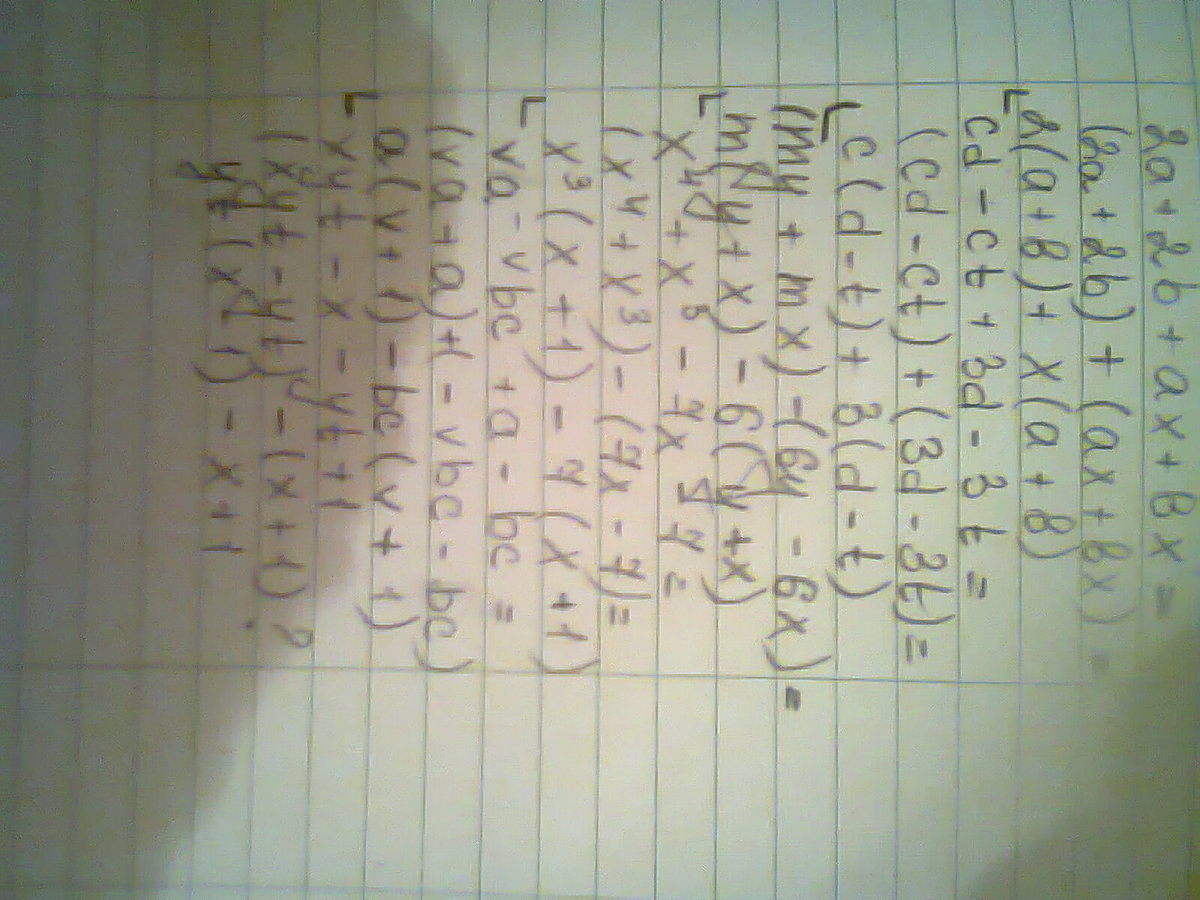 2a + 2b + ax + bx =
(2a + 2b) + (ax + bx) =
2(a + b) + x(a + b)
cd - ct + 3d - 3t =
(cd - ct) + (3d - 3t) =
c(d - t) + 3(d - t)
(my + mx) - (6y - 6x) =
m(y + x) - 6(y + x)
x⁴ + x³ - 7x - 7 =
(x⁴ + x³) - (7x - 7) =
x³(x + 1) - 7(x + 1)
va - vbc + a - bc =
(va + a) + - vbc - bc)
a(v + 1) - bc(v + 1)
xyt - x - yt + 1
(xyt - yt) - (x + 1) ?
yt(x - 1) - x + 1